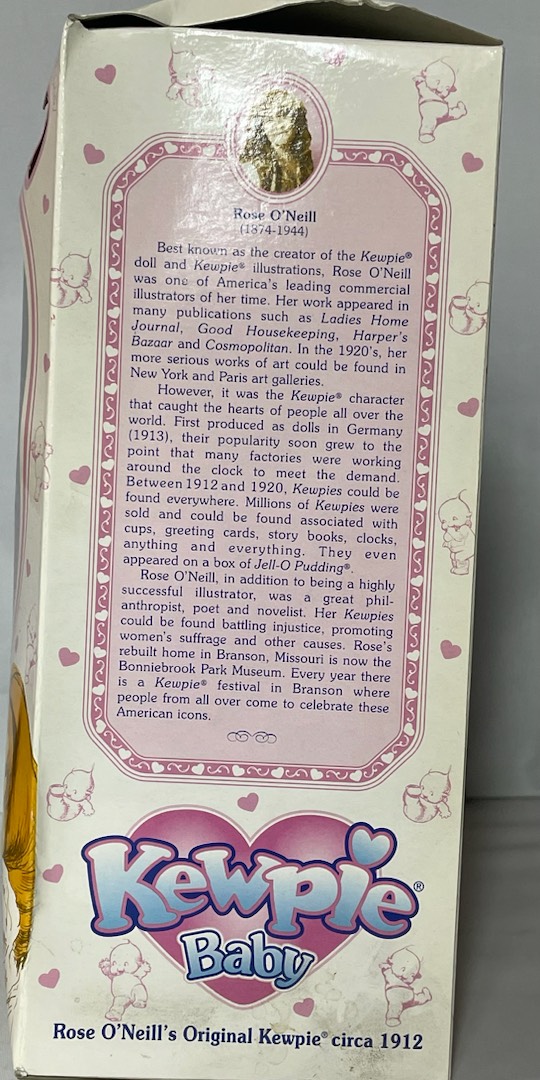 Rose O'Neill
(1874-1944)
Best known as the creator of the Kewpie®
doll and Kewpie® illustrations, Rose O'Neill
was one of America's leading commercial
illustrators of her time. Her work appeared in
many publications such as Ladies Home
Journal, Good Housekeeping, Harper's
Bazaar and Cosmopolitan. In the 1920's, her
more serious works of art could be found in
New York and Paris art galleries.
However, it was the Kewpie® character
that caught the hearts of people all over the
world. First produced as dolls in Germany
(1913), their popularity soon grew to the
point that many factories were working
around the clock to meet the demand.
Between 1912 and 1920, Kewpies could be
found everywhere. Millions of Kewpies were
sold and could be found associated with
cups, greeting cards, story books, clocks,
anything and everything. They even
appeared on a box of Jell-O Pudding®.
Rose O'Neill, in addition to being a highly
successful illustrator, was a great phil-
anthropist, poet and novelist. Her Kewpies
could be found battling injustice, promoting
women's suffrage and other causes. Rose's
rebuilt home in Branson, Missouri is now the
Bonniebrook Park Museum. Every year there
is a Kewpie® festival in Branson where
people from all over come to celebrate these
American icons.
Kewpie®
Baby
Rose O'Neill's Original Kewpie® circa 1912